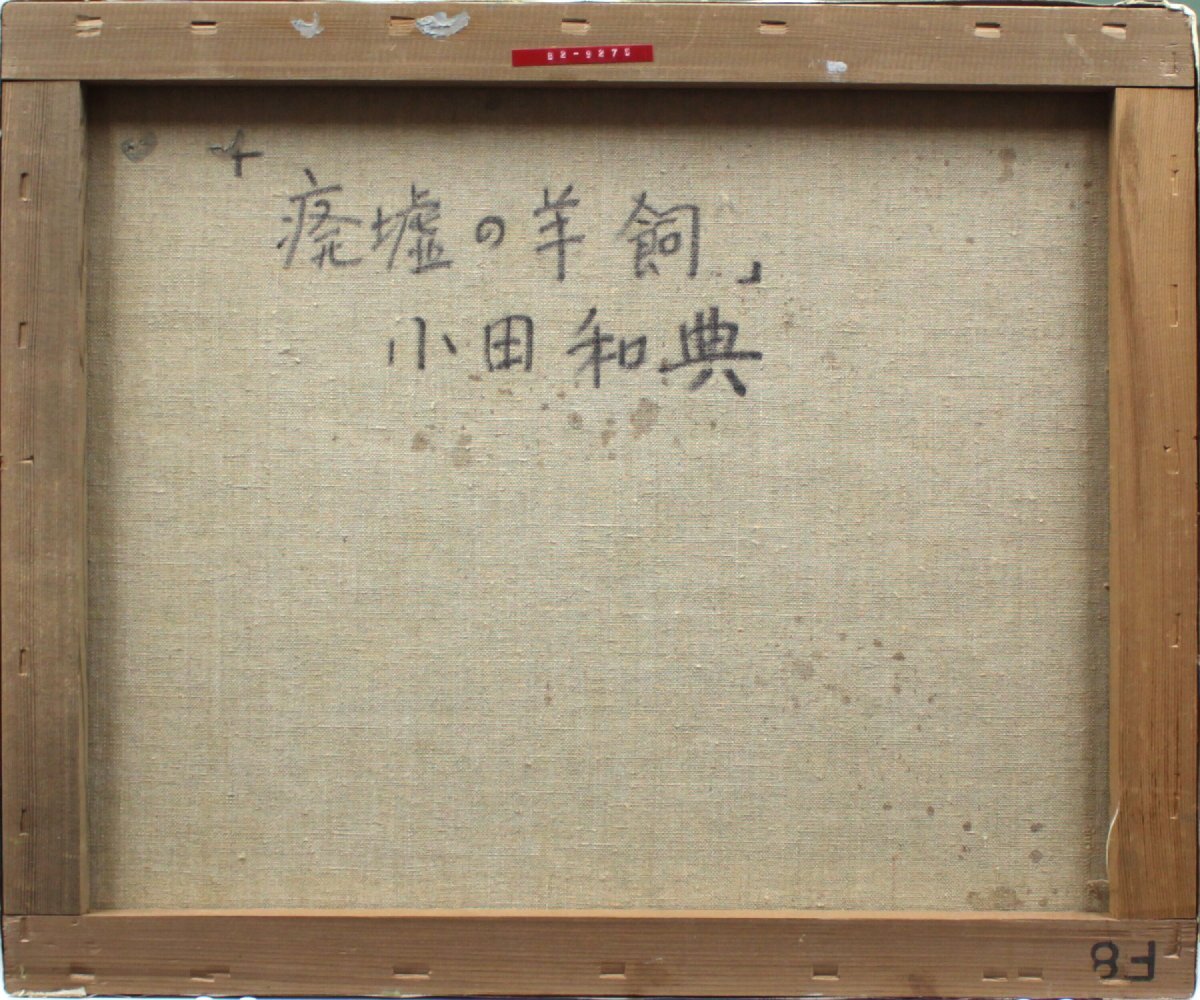 82-9275
廃墟の羊飼」
小田和典
F8